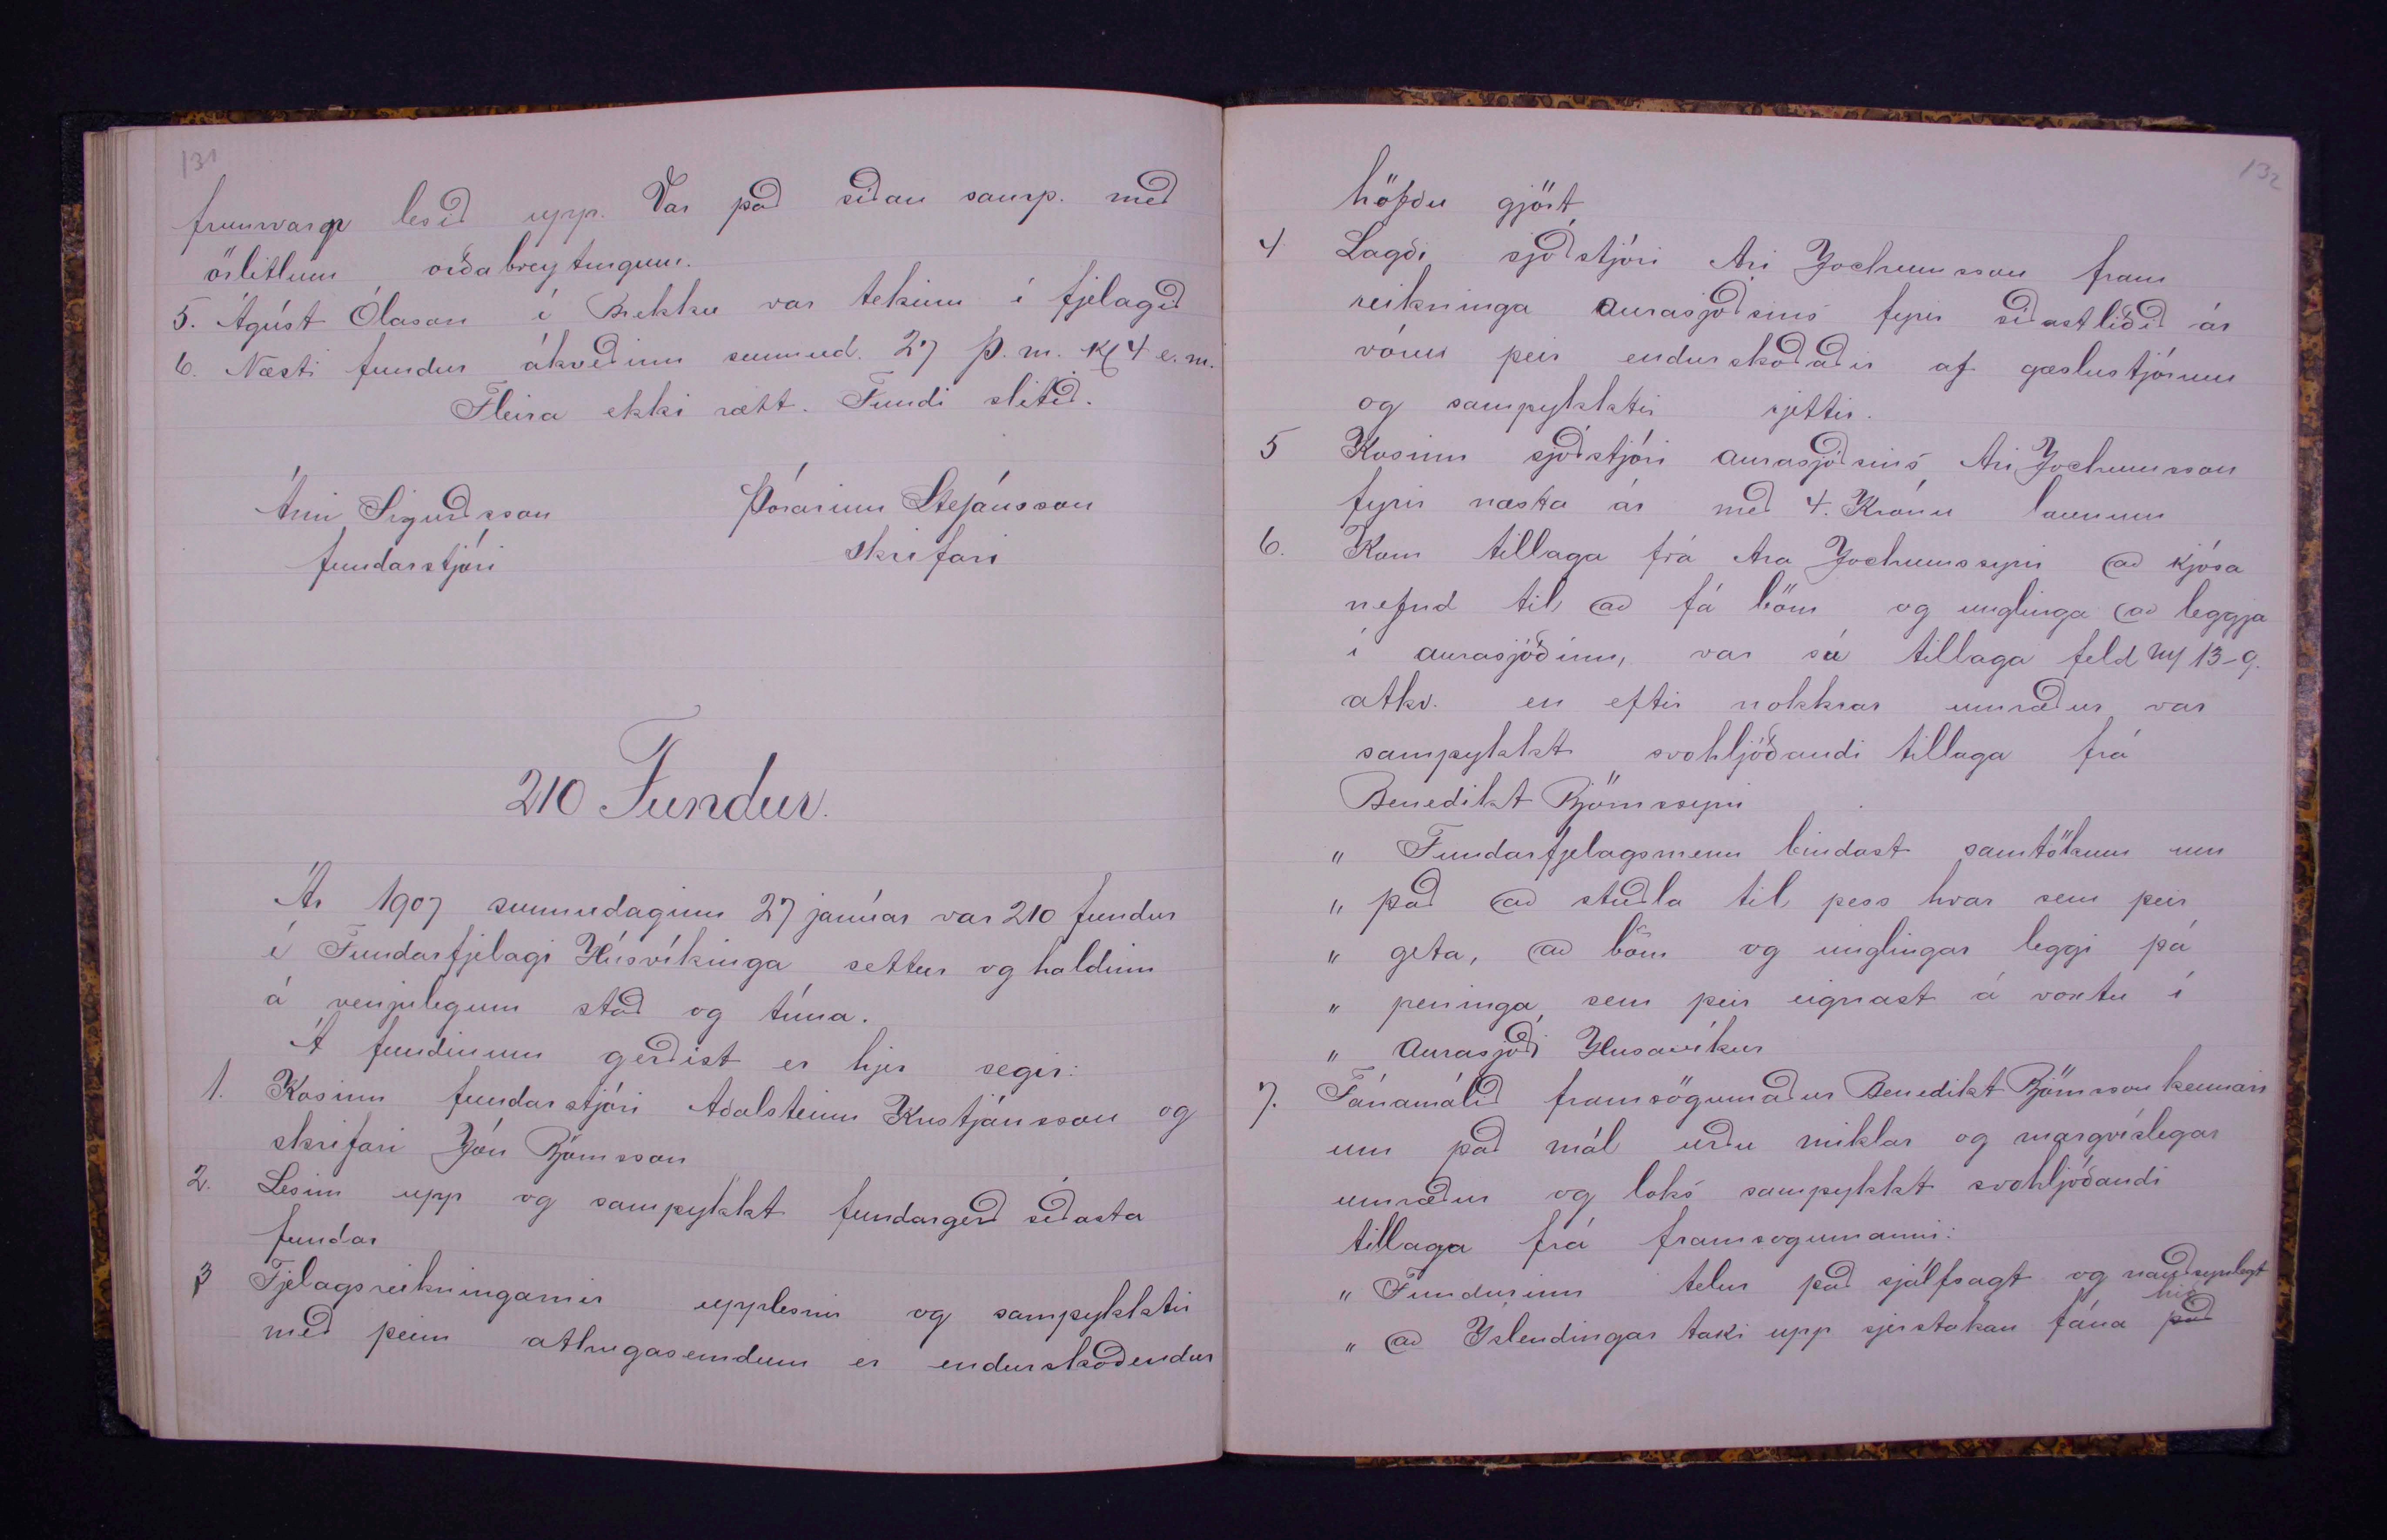 131
frumvarp lesið upp. Var það síðan samþ. með
örlitlum orðabreytingum.
5. Ágúst Ólason í Brekku var tekinn í fjelagið
6. Næsti fundur ákveðinn sunnud. 27 þ.m. kl 4 e.m.
Fleira ekki rætt. Fundi slitið.
Árni Sigurðsson Þórarinn Stefánsson
fundarstjóri skrifari
210 Fundur.
Ár 1907 sunnudaginn 27 janúar var 210 fundur
í Fundarfjelagi Húsvíkinga settur og haldinn
á venjulegum stað og tíma.
Á fundinum gerðist er hjer segir:
1. Kosinn fundarstjóri Aðalsteinn Kristjánsson og
skrifari Jón Björnsson
2. Lesin upp og samþykkt fundargerð síðasta
fundar
3 Fjelagsreikningarnir upplesnir og samþykktir
með þeim athugasemdum er endurskoðendur
132
höfðu gjört
4 Lagði sjóðstjóri Ari Jochumsson fram
reikninga aurasjóðsins fyrir síðastliðið ár
vóru þeir endurskoðaðir af gæslustjórum
og samþykktir rjettir.
5 Kosinn sjóðstjóri aurasjóðsins Ari Jochumsson
fyrir næsta ár með 4. Krónu launum
6. Kom tillaga frá Ara Jochumssyni að kjósa
nefnd til að fá börn og unglinga að leggja
í aurasjóðinn, var sú tillaga feld m/ 13-9.
atkv. en eftir nokkrar umræður var
samþykkt svohljóðandi tillaga frá
Benedikt Björnssyni
„ Fundarfjelagsmenn bindast samtökum um
„ það að stuðla til þess hvar sem þeir
„ geta, að börn og unglingar leggi þá
„ peninga, sem þeir eignast á vöxtu í
„ Aurasjóði Húsavíkur
7. Fánamálið framsögumaður Benedikt Björnsson kennari
um það mál urðu miklar og margvíslegar
umræður og loks samþykkt svohljóðandi
tillaga frá framsogumanni:
„ Fundurinn telur það sjálfsagt og nauðsynlegt
„ að Íslendingar taki upp sjerstakan fána það hið